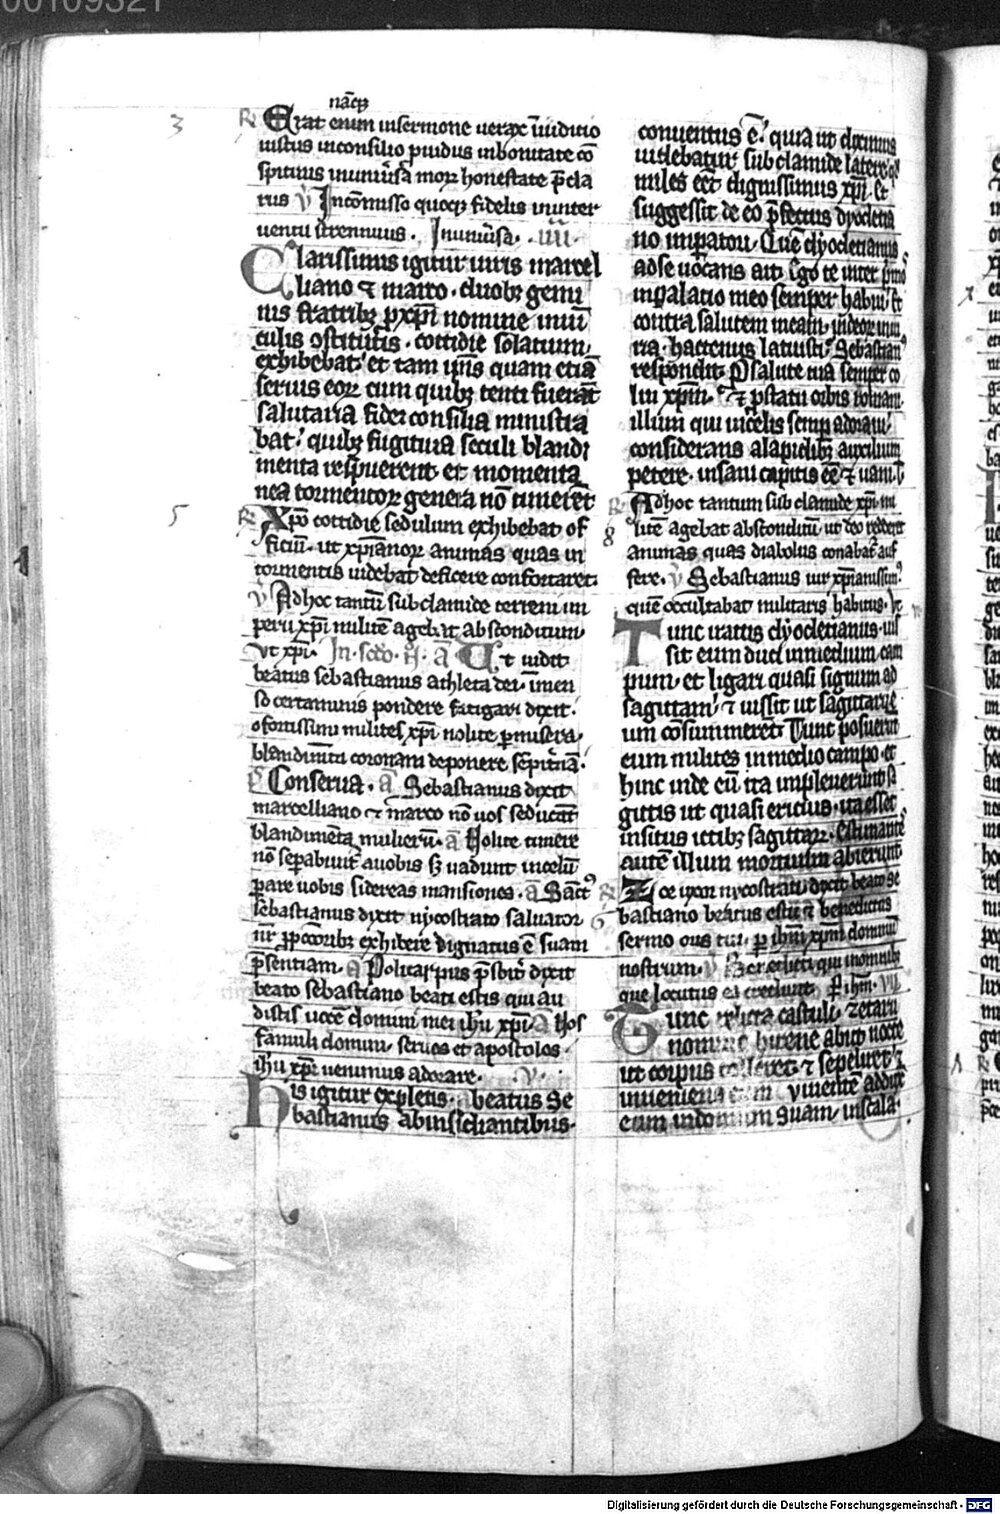 00109321
nāqꝫ
3 R Erat enim insermone uerax iniudicio
iustus inconsilio ꝓuidus inbonitate cō
spicuus inuniu̇sa moꝝ honestate p̄cla
rus v Incōmisso quoqꝫ fidelis ininter
uentu strennuus. Inuniu̇sa. .iiii.
Clarissimis igitur uiris marcel
liano ⁊ marco. duobꝫ gemi
nis fratribꝫ ꝓ xp̄i nomine inuin
culis ꝯstitutis. cottidie solatium
exhibebat et tam ip̄is quam etiā
seruis eoꝝ cum quibꝫ tenti fuerāt
salutaria fidei consilia ministra
bat. quibꝫ fugitiua seculi blandi
menta respuerent et momenta
nea tormentoꝝ genera nō timerēt
5 R Xp̄o cottidie sedulum exhibebat of
ficiū. ut xp̄ianoꝝ animas quas in
tormentis uidebat deficere confortaret.
v Adhoc tantū sub clamide terreni im
perii xp̄i militē agebat absconditum
Vt xp̄i. In. scdo. N. a Ut uidit
beatus sebastianus athleta dei. imen
so certaminis pondere fatigari dixit.
o fortissimi milites xp̄i nolite ꝑ misera
blandimēta coronam deponere sēpit̄nā.
Conserua. a Sebastianus dixit
marcelliano ⁊ marco nō uos seducāt
blandimēta mulierū. a Nolite timere
nō sepabunt̄ auobis sꝫ uadunt incelū
ꝑare uobis sidereas mansiones. a Sānct⁹
sebastianus dixit nycostrato saluator
nr̄ p̄cc̄oribꝫ exhibere dignatus ē suam
p̄sentiam. a Policarpus p̄sbit̄ dixit
beato sebastiano beati estis qui au
distis uocē domini mei ih̄u xp̄i. a Nos
famuli domini seruos et apostolos
ih̄u xp̄i uenimus adorare. .v.
His igitur expletis. beatus Se
bastianus abinsidiantibus.
conuentus ē. quia ut dominus
uidebatur sub clamide latere
miles eēt dignissimus xp̄i. Et
suggessit de eo p̄fectus dyocletia
no imperatori. Quē dyocletianus
adse uocans ait. Ego te inter p̄mo
inpalatio meo semper habui. Et
contra salutem meam.
hactenus latuisti. Sebastian⁹
respondit. P salute tua semper co
lui xp̄m. ⁊ ꝓ statu orbis romani
illum qui incelis semꝑ adoraui.
considerans alapidibꝫ auxilium
petere. insani capitis eē ⁊ uani.
R Adhoc tantum sub clamide xp̄i mi
8 litē agebat absconditū. ut deo redderet
animas quas diabolus conabatur auf
ferre. v Sebastianus uir xp̄ianissim⁹.
quē occultabat militaris habitus.
Tunc iratus dyocletianus. ius
sit eum duci inmedium cam
pum. et ligari quasi signum ad
sagittam. ⁊ iussit ut sagittarie
um cōsummerēt. Tunc posuerunt
eum milites inmedio campo. et
hinc inde eū ita impleuerunt sa
gittis ut quasi ericius. ita esset
insitus ictibꝫ sagittaꝝ. Estimantes
autē illum mortuum abierunt
R Zoe uxor nycostrati dixit beato se
6 bastiano beatus es tu ⁊ benedictus
sermo oris tui. ꝑ ih̄m xp̄m dominū
nostrum. v Benedicti qui inomnibꝫ
que locutus es credunt. P ih̄m. VI
Tunc relicta castuli. zetarii
nomine hirene abiit nocte
ut corpus tolleret ⁊ sepeliret ⁊
inueniens eum viuentē adduxit
eum indomum suam. inscala
Digitalisierung gefördert durch die Deutsche Forschungsgemeinschaft - DFG